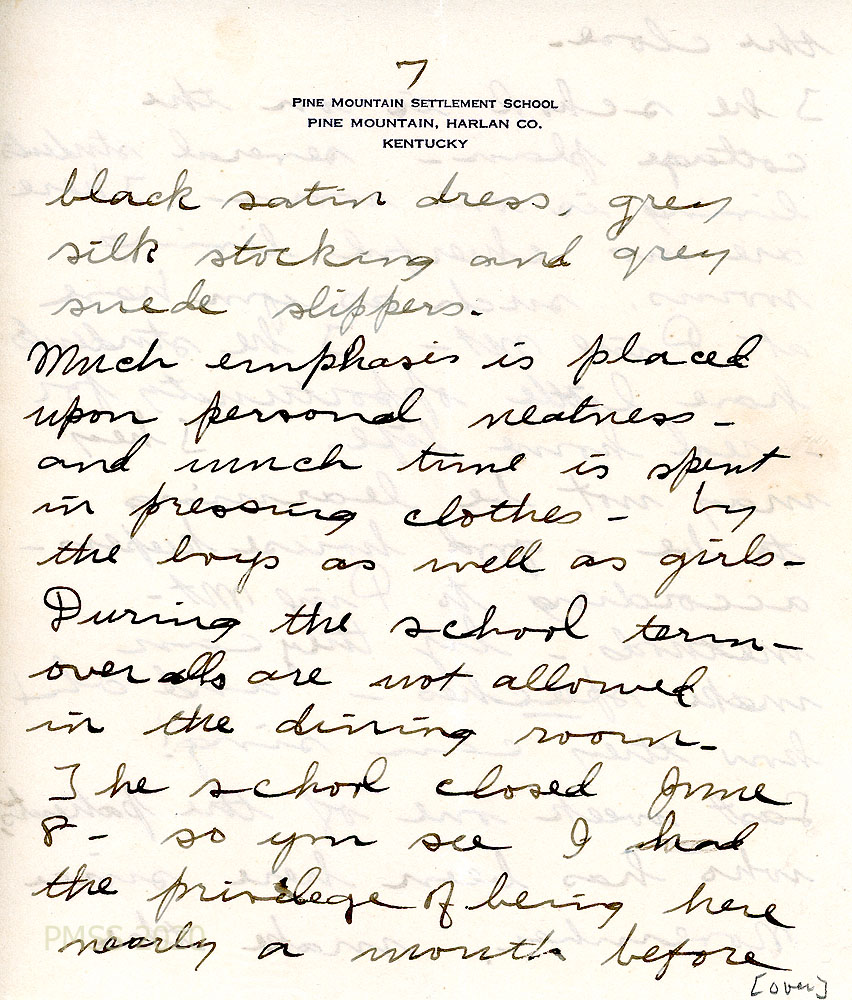 7
PINE MOUNTAIN SETTLEMENT SCHOOL
PINE MOUNTAIN, HARLAN CO.
KENTUCKY
black satin dress, grey
silk stocking and grey
suede slippers.
Much emphasis is placed
upon personal neatness -
and much time is spent
in pressing clothes - by
the boys as well as girls -
During the school term -
overalls are not allowed
in the dining room -
The school closed June
8 - so you see I had
the privilege of being here
nearly a month before
[over]
PMSS 2020